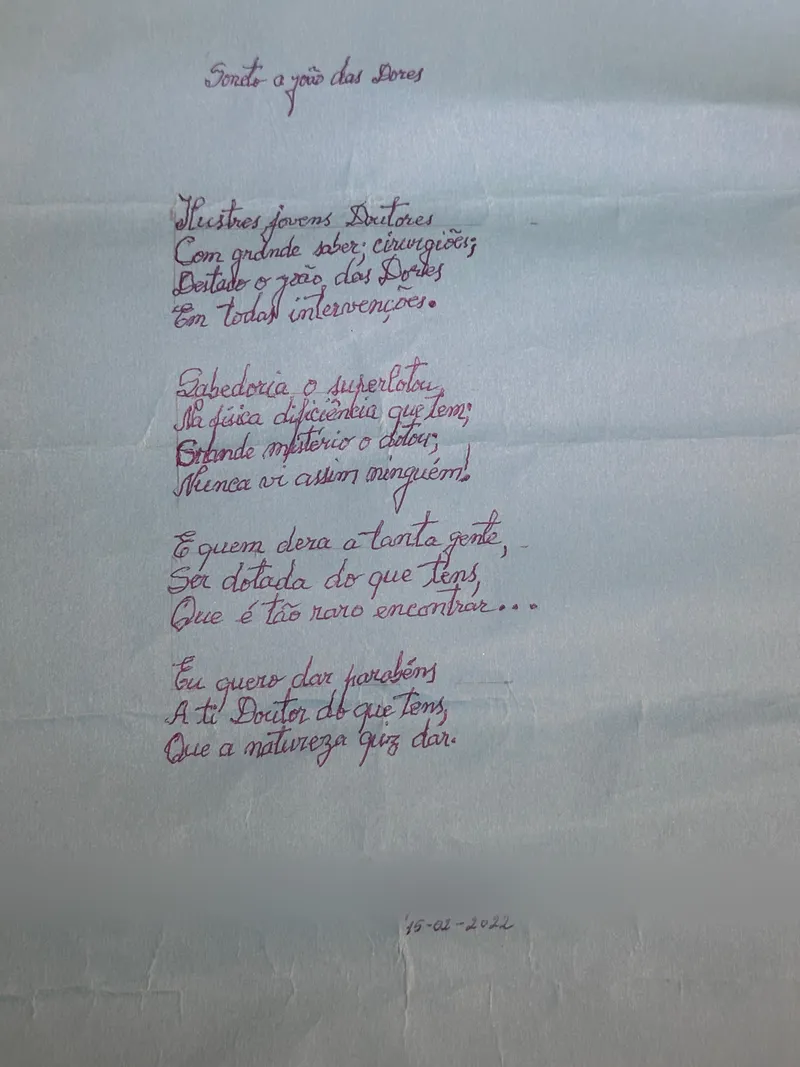 Soneto a joão das Dores
Ilustres jovens Doutores
Com grande saber; cirurgiões;
Destado o joão das Dores
Em todas intervenções.
Sabedoria o superlotou,
Na física dificiência que tem;
Grande mistério o dotou;
Nunca vi assim ninguém!
E quem dera a tanta gente,
Ser dotada do que tens,
Que é tão raro encontrar...
Eu quero dar parabéns
A ti Doutor do que tens,
Que a natureza quiz dar.
15-02-2022